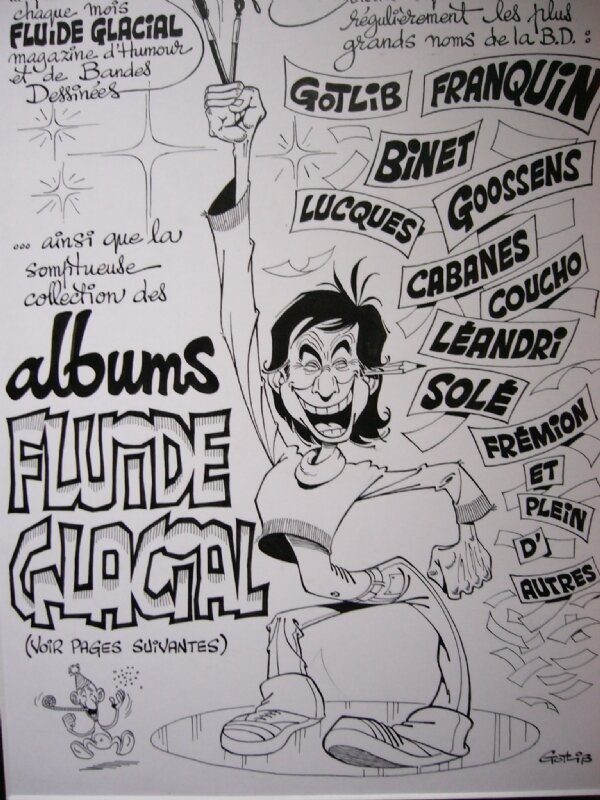 chaque mois
FLUIDE GLACIAL
magazine d'Humour
et de Bandes
Dessinées
régulièrement les plus
grands noms de la B.D. :
GOTLIB
FRANQUIN
BINET
GOOSSENS
LUCQUES
CABANES
COUCHO
LÉANDRI
SOLÉ
FRÉMION
ET
PLEIN
D'
AUTRES
... ainsi que la
somptueuse
collection des
albums
FLUIDE
GLACIAL
(VOIR PAGES SUIVANTES)
Gotlib